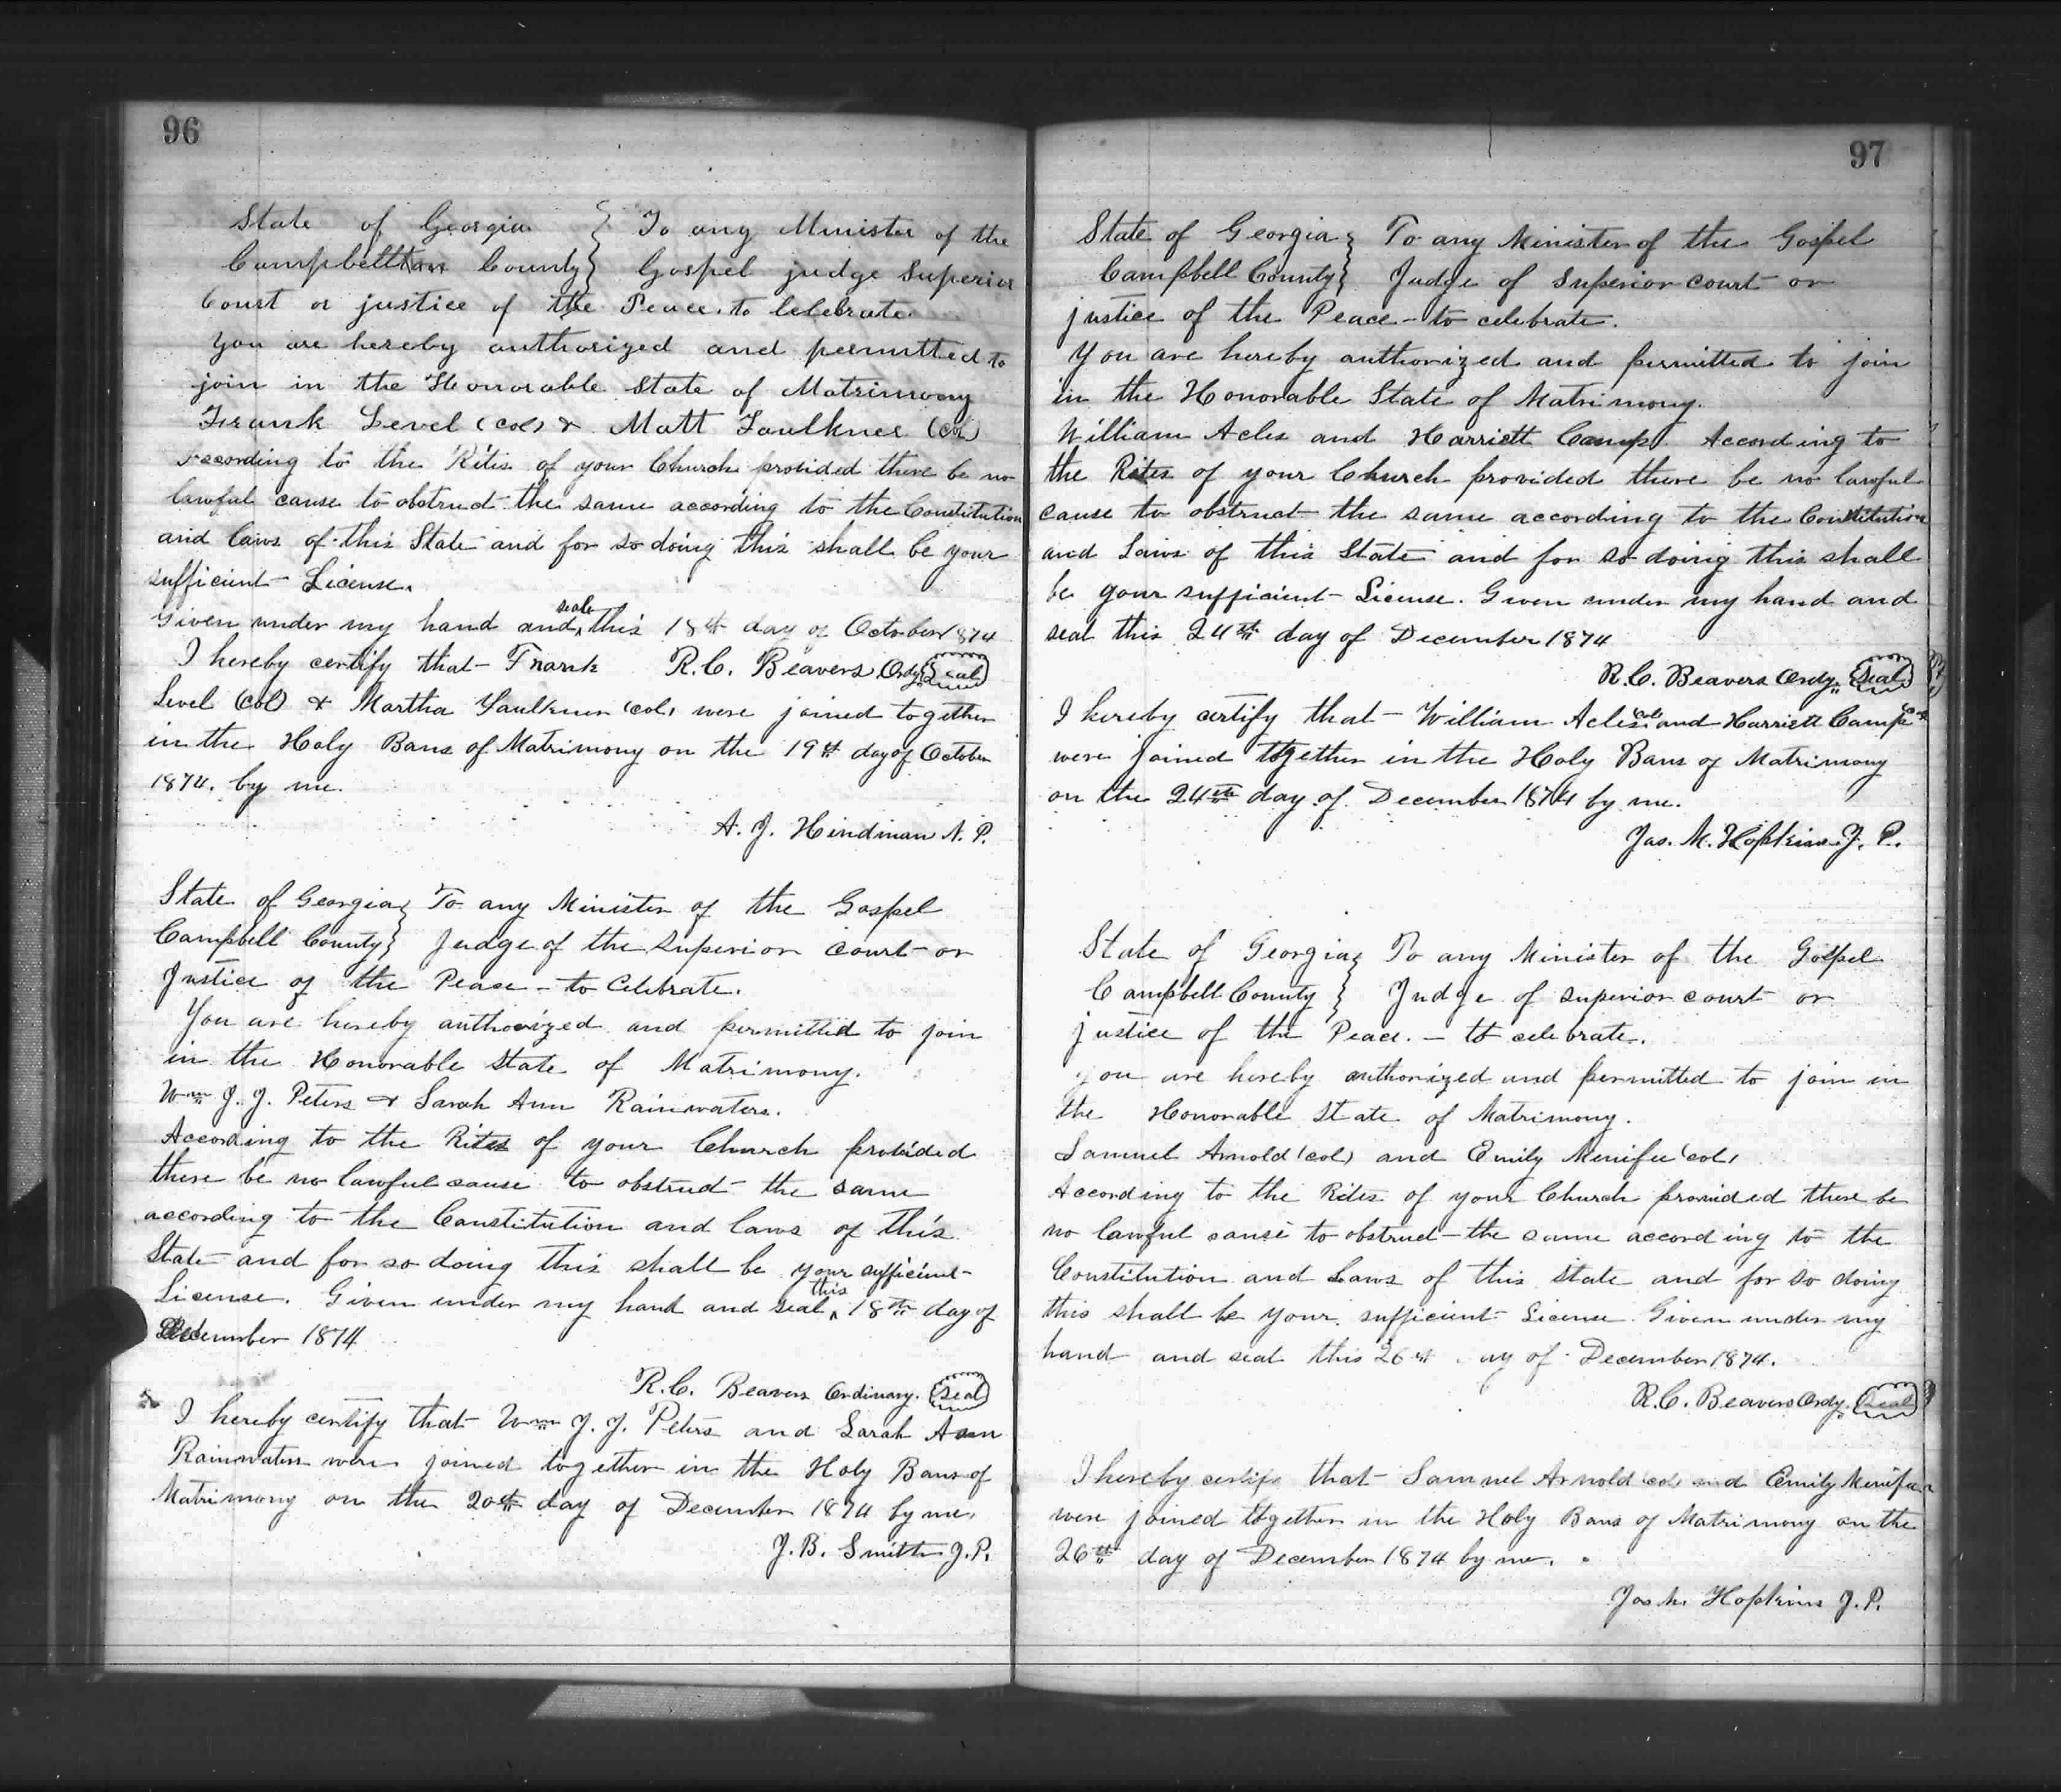 96
State of Georgia } To any Minister of the
Campbellton County } Gospel judge Superior
Court or justice of the Peace. to Celebrate
You are hereby authorized and permitted to
join in the Honorable State of Matrimony
Frank Level (col) & Matt Faulkner (col)
according to the Rites of your Church provided there be no
lawful cause to obstruct the same according to the Constitution
and laws of this State and for so doing this shall be your
sufficient License.
Given under my hand and seal this 18th day of October 1874
R.C. Beavers Ordy. Seal
I hereby certify that Frank
Level (col) & Martha Faulkner (col) were joined together
in the Holy Bans of Matrimony on the 19th day of October
1874. by me.
A. J. Hindman N. P.
State of Georgia } To any Minister of the Gospel
Campbell County } Judge of the Superior Court or
Justice of the Peace - to Celebrate.
You are hereby authorized and permitted to join
in the Honorable State of Matrimony.
Wm J. J. Peters & Sarah Ann Rainwaters.
According to the Rites of your Church provided
there be no lawful cause to obstruct the same
according to the Constitution and laws of this
State and for so doing this shall be your sufficient
License. Given under my hand and seal this 18th day of
December 1874
R.C. Beavers Ordinary. Seal
I hereby certify that Wm J. J. Peters and Sarah Ann
Rainwaters were joined together in the Holy Bans of
Matrimony on the 20th day of December 1874 by me.
J. B. Smith J.P.
97
State of Georgia } To any Minister of the Gospel
Campbell County } Judge of Superior court or
justice of the Peace - to celebrate.
You are hereby authorized and permitted to join
in the Honorable State of Matrimony.
William Acles and Harriett Camp. According to
the Rites of your Church provided there be no lawful
cause to obstruct the same according to the Constitution
and Laws of this State and for so doing this shall
be your sufficient License. Given under my hand and
seal this 24th day of December 1874
R.C. Beavers Ordy. Seal
I hereby certify that William Acles (col) and Harriett Camp (col)
were joined together in the Holy Bans of Matrimony
on the 24th day of December 1874 by me.
Jas. M. Hopkins J. P.
State of Georgia } To any Minister of the Gospel
Campbell County } Judge of Superior court or
justice of the Peace. - to celebrate.
you are hereby authorized and permitted to join in
the Honorable State of Matrimony.
Samuel Arnold (col) and Emily Menifee (col)
According to the Rites of your Church provided there be
no lawful cause to obstruct the same according to the
Constitution and Laws of this State and for so doing
this shall be your sufficient License. Given under my
hand and seal this 26th day of December 1874.
R.C. Beavers Ordy. Seal
I hereby certify that Samuel Arnold (col) and Emily Menifee
were joined together in the Holy Bans of Matrimony on the
26th day of December 1874 by me.
Jas M. Hopkins J.P.